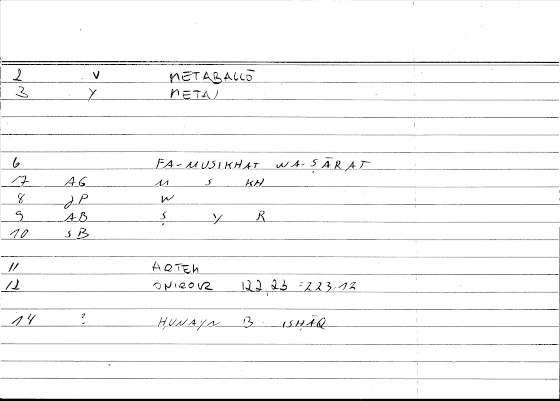 2 V METABALLŌ
3 Y METAI
6 FA-MUSIKHAT WA-ṢĀRAT
17 AG M S KH
8 JP W
9 AB Ṣ Y R
10 SB
11 ARTEM
12 ONIROCR 122,23 = 223.12
14 ? ḤUNAYN B. ISḤĀQ